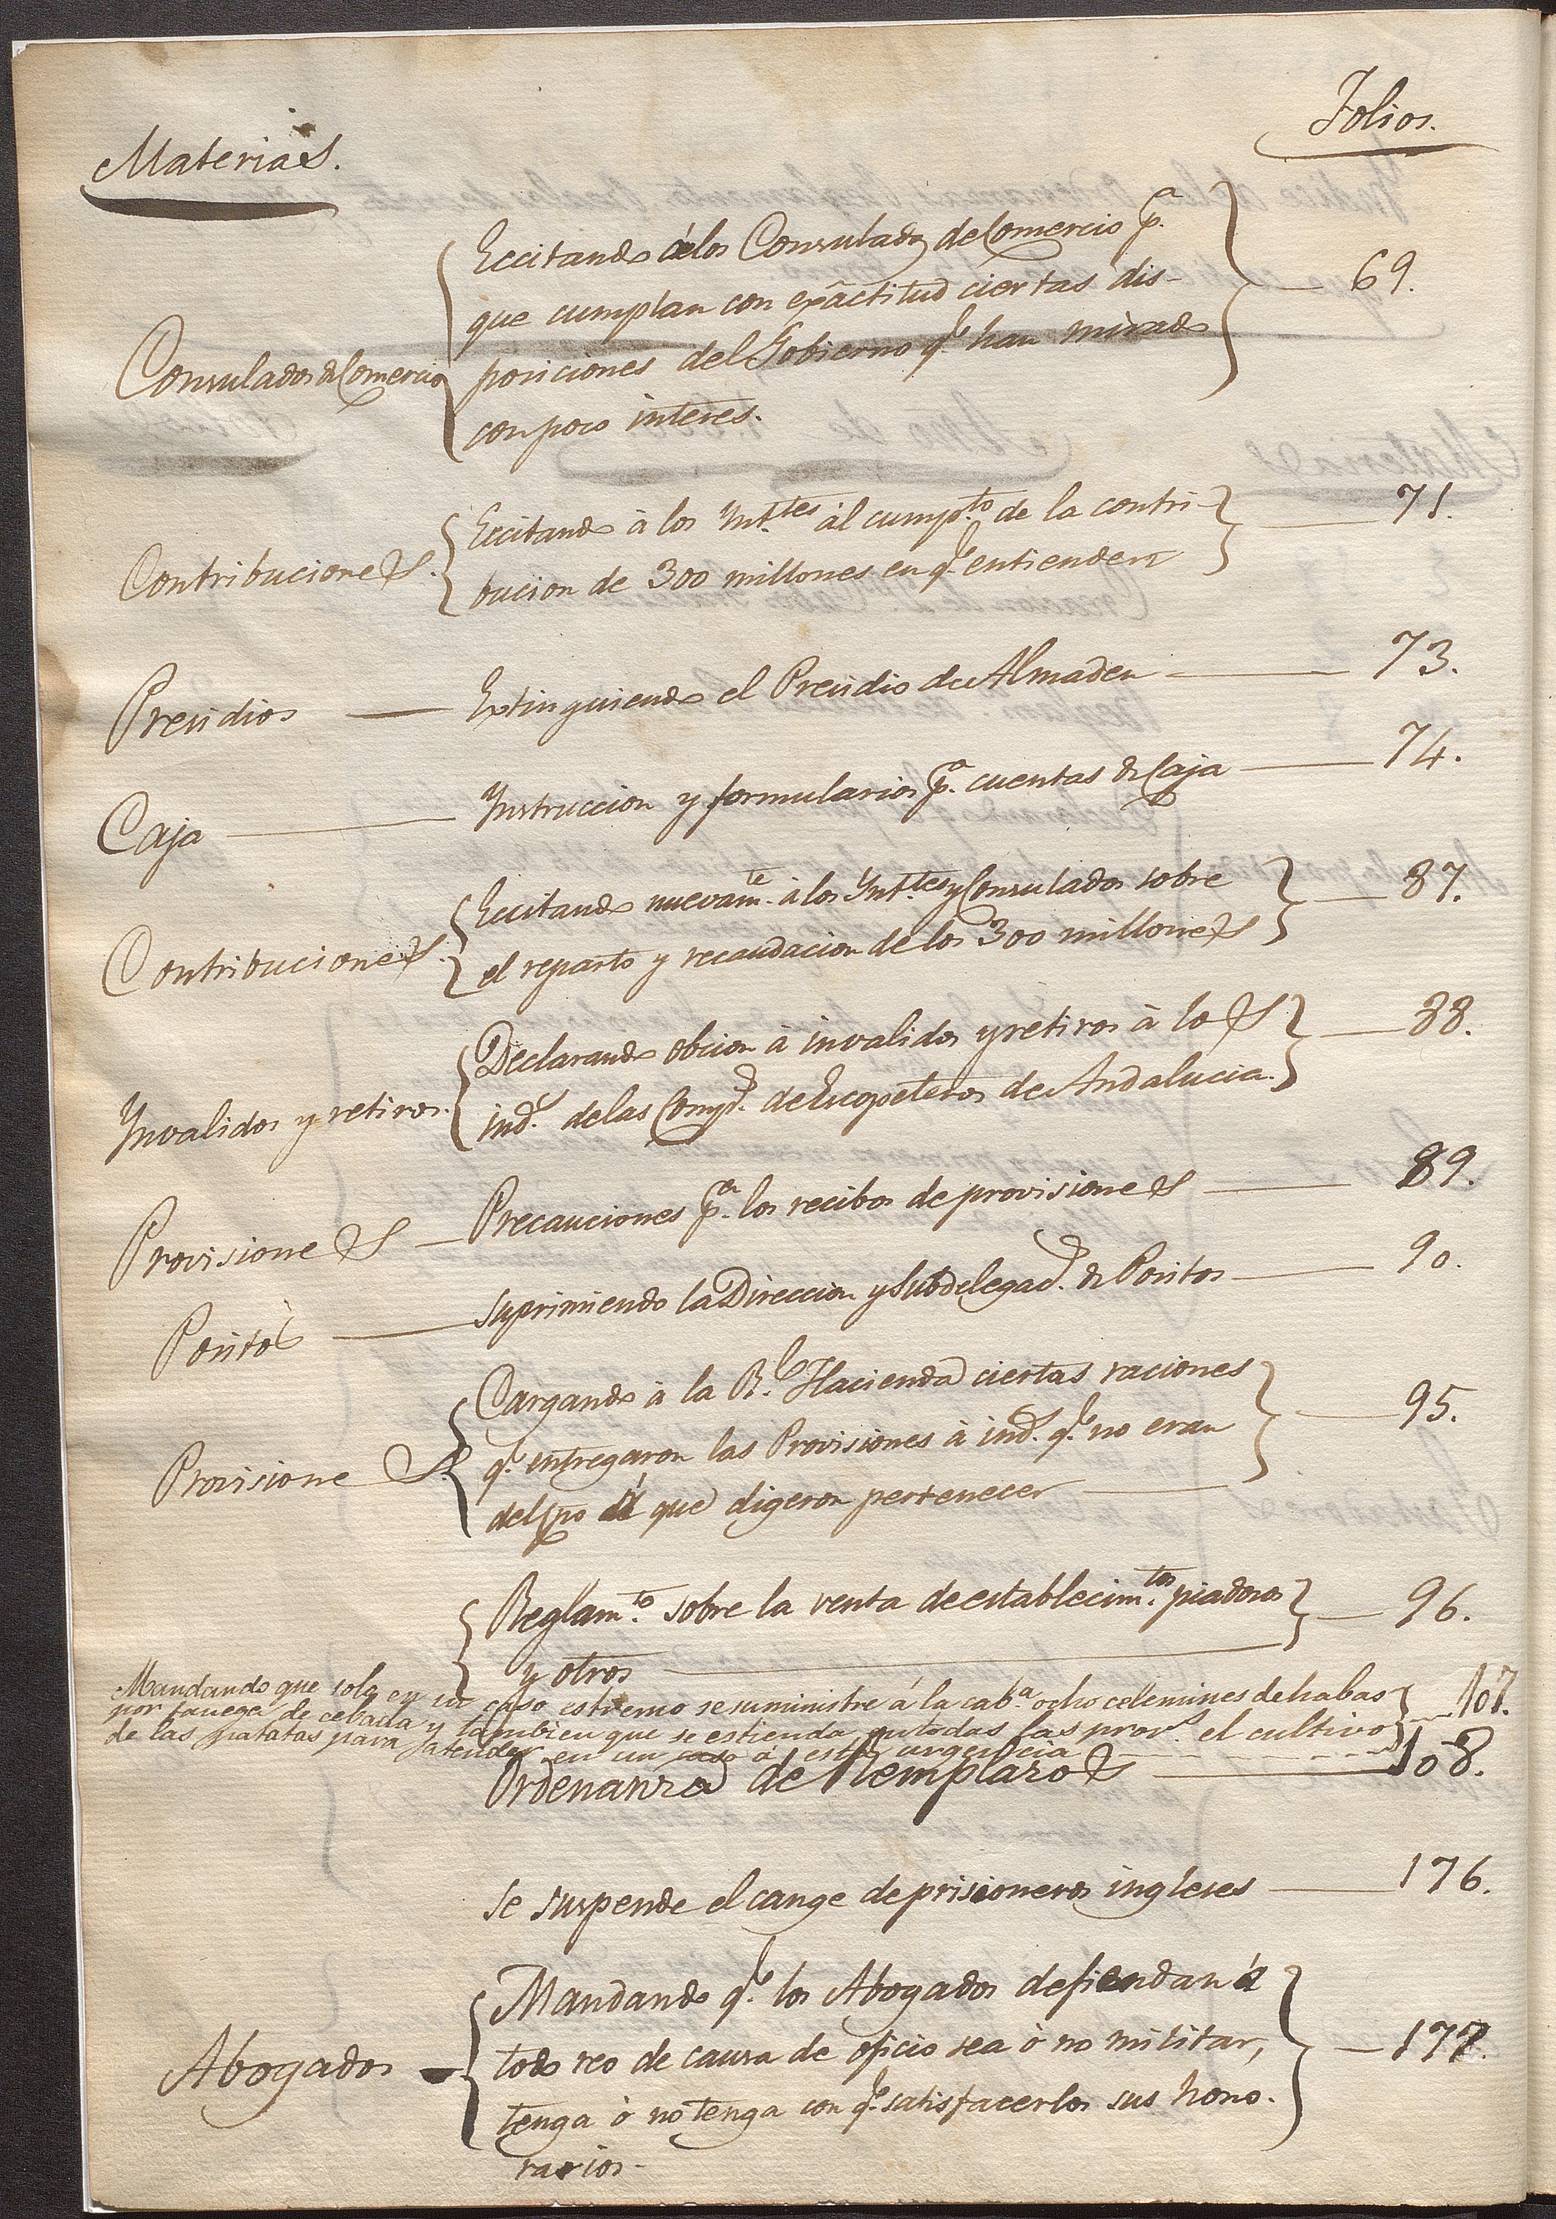 Folios.
Materias.
Eccitando á los Consulados de Comercio p.ª
que cumplan con exâctitud ciertas dis-
Consulados de Comercio posiciones del Gobierno q.e han mirado
con poco interes.
69.
Eccitando à los Int.tes àl cump.to de la contri-
Contribuciones. bucion de 300 millones en q.e entienden
71.
Presidios Extinguiendo el Presidio de Almaden 73.
Caja Instruccion y formularios p.ª cuentas de Caja 74.
Eccitando nuevam.te à los Int.tes y Consulados sobre
Contribuciones. el reparto y recaudacion de los 300 millones
87.
Declarando obcion à invalidos y retiros à los
Invalidos y retiros. ind.s de las Comp.s de Escopeteros de Andalucia.
88.
Provisiones Precauciones p.ª los recibos de provisiones 89.
Positos suprimiendo la Direccion y Subdelegac.s de Positos 90.
Cargando à la R.l Hacienda ciertas raciones
Provisiones. q.e entregaron las Provisiones à ind.s q.e no eran
del que digeron pertenecer
95.
Reglam.to sobre la venta de establecim.tos piadosos
y otros
96.
Mandando que solo en un caso estremo se suministre á la cab.ª ocho celemines de habas
por fanega de cebada y tambien que se estienda en todas las prov.s el cultivo
de las patatas para atender en un caso á esta urgencia
107.
Ordenanza de Remplazos 108.
Se suspende el cange de prisioneros ingleses 176.
Mandando q.e los Abogados defiendan á
Abogados todo reo de causa de oficio sea ò no militar,
tenga ò no tenga con q.e satisfacerlos sus hono-
rarios.
177.